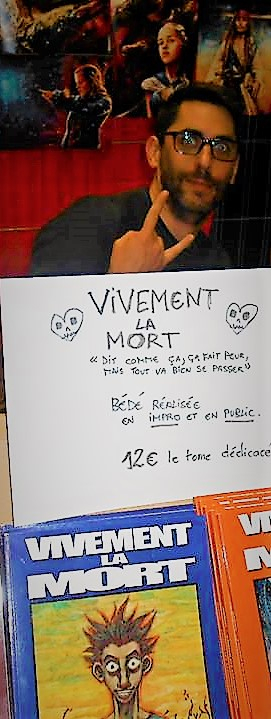 VIVEMENT
LA
MORT
"DIT COMME ÇA, ÇA FAIT PEUR,
MAIS TOUT VA BIEN SE PASSER"
BÉDÉ RÉALISÉE
EN IMPRO ET EN PUBLIC.
12€ le tome dédicacé
VIVEMENT
LA
MORT
VI
M